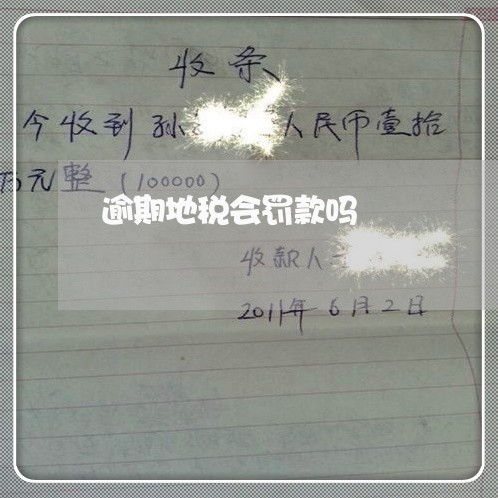 收条
今收到孙人民币壹拾
万元整（100000）
逾期地税会罚款吗
收款人
2011年6月2日